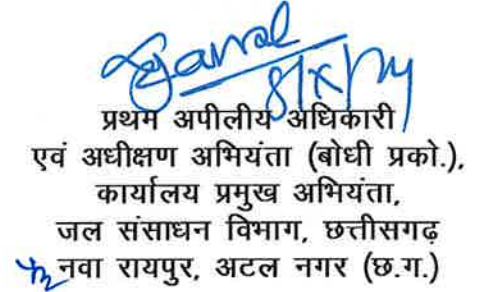 प्रथम अपीलीय अधिकारी
एवं अधीक्षण अभियंता (बोधी प्रको.),
कार्यालय प्रमुख अभियंता,
जल संसाधन विभाग, छत्तीसगढ़
नवा रायपुर, अटल नगर (छ.ग.)